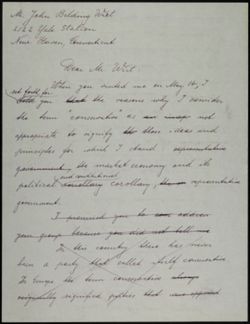 Mr. John Belding Wirt
2122 Yale Station
New Haven, Connecticut
Dear Mr. Wirt
set forth for
When you visited me on May 16, I
told you the reasons why I consider
the term "conservative" as
not
appropriate to signify those ideas and
principles for which I stand representative
government, the market economy and its
political corollary corollary, representative
government.
I promised you to answer
your because you did not tell me
In this country there has never
been a party that called itself conservative.
In Europe the term conservative always
originally signified parties that opposed